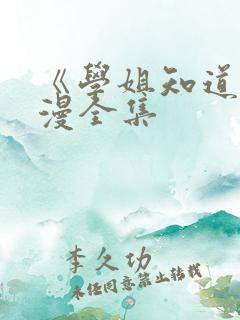 《學姐知道
漫全集
李久功
未经同意禁止转载